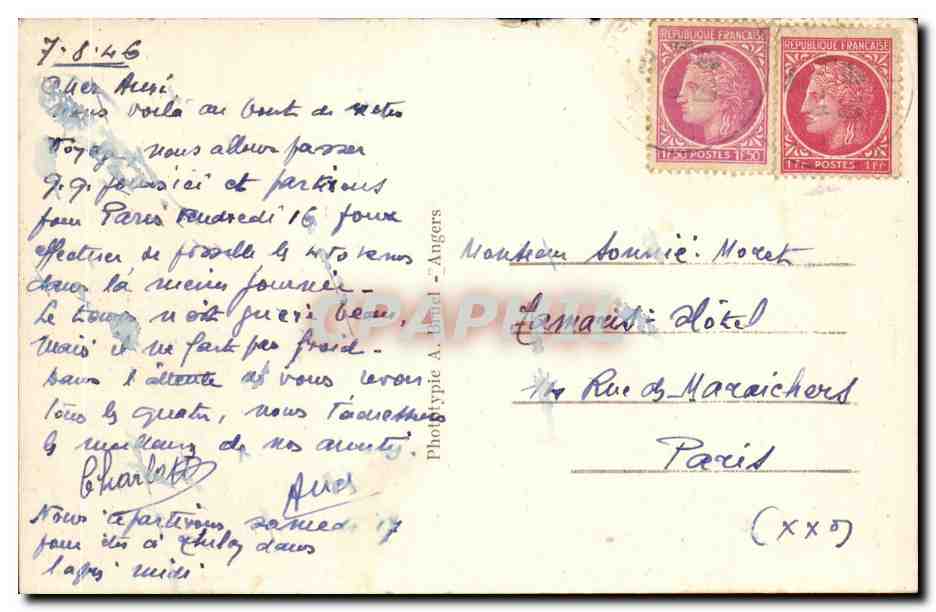 7-8-46
Cher Ami
nous voilà au bout de notre
voyage, nous allons passer
q.q. jours ici et partirons
pour Paris vendredi 16 pour
effectuer si possible les 450 kms
dans la même journée -
Le temps n'est guère beau,
mais il ne fait pas froid -
Dans l'attente de vous revoir
tous les quatre, nous t'adressons
le meilleur de nos amitiés.
Charlotte
Nous repartirons samedi 17
pour dans
l'après midi
Phototypie A. Bruel - Angers
REPUBLIQUE FRANÇAISE
1F50 POSTES 1F50
REPUBLIQUE FRANÇAISE
1F POSTES 1F
Monsieur Sonnié-Moret
Tamaris-Hôtel
Rue des Maraichers
Paris
(XX°)
CPAPHIL